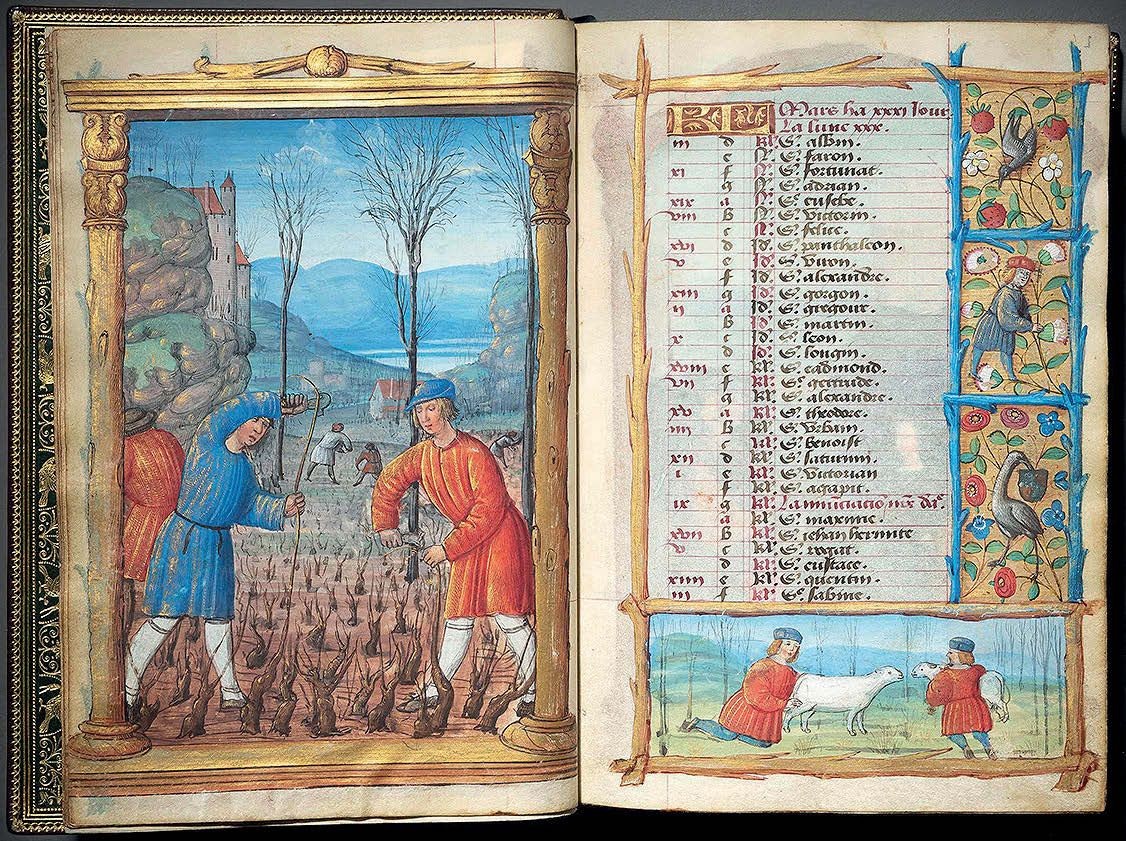 KL Mars ha xxxi Jour
La lune xxx.
iii d kl S. albin.
e N. S. faron.
xi f N. S. fortunat.
g N. S. adrian.
xix a N. S. eusebe.
viii b N. S. victorin.
c N. S. felice.
xvi d Id. S. panthaleon.
v e Id. S. viron.
f Id. S. alexandre.
xiii g Id. S. gorgon.
ii a Id. S. gregoire.
b Id. S. martin.
x c Id. S. leon.
d Id. S. longin.
xviii e kl. S. eadmond.
vii f kl. S. gertrude.
g kl. S. alexandre.
xv a kl. S. theodore.
iiii b kl. S. urbain.
c kl. S. benoist
xii d kl. S. saturnin.
i e kl. S. victorian
f kl. S. agapit.
ix g kl. La nunciatio nre da.
a kl. S. maxime.
xvii b kl. S. jehan hermite
v c kl. S. rogat.
d kl. S. eustace.
xiiii e kl. S. quentin.
iii f kl. Se. sabine.